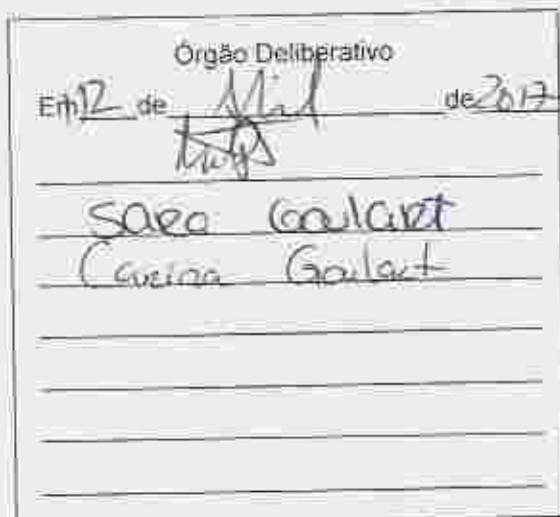 Órgão Deliberativo
Em 12 de Abril de 2017
Sara Goulart
Carina Goulart